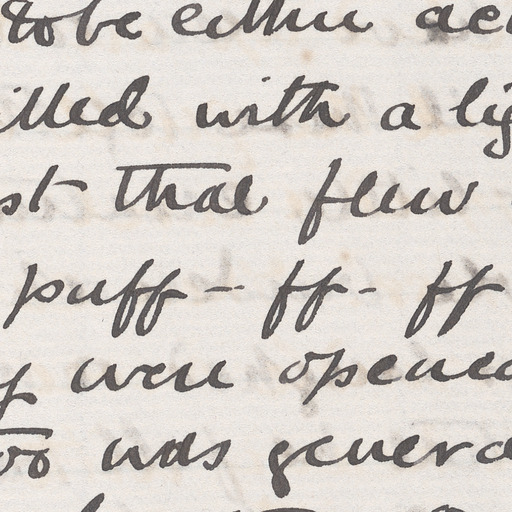 to be either
illed with a lig
st that flew
puff - ff - ff
y were opened
too was genera